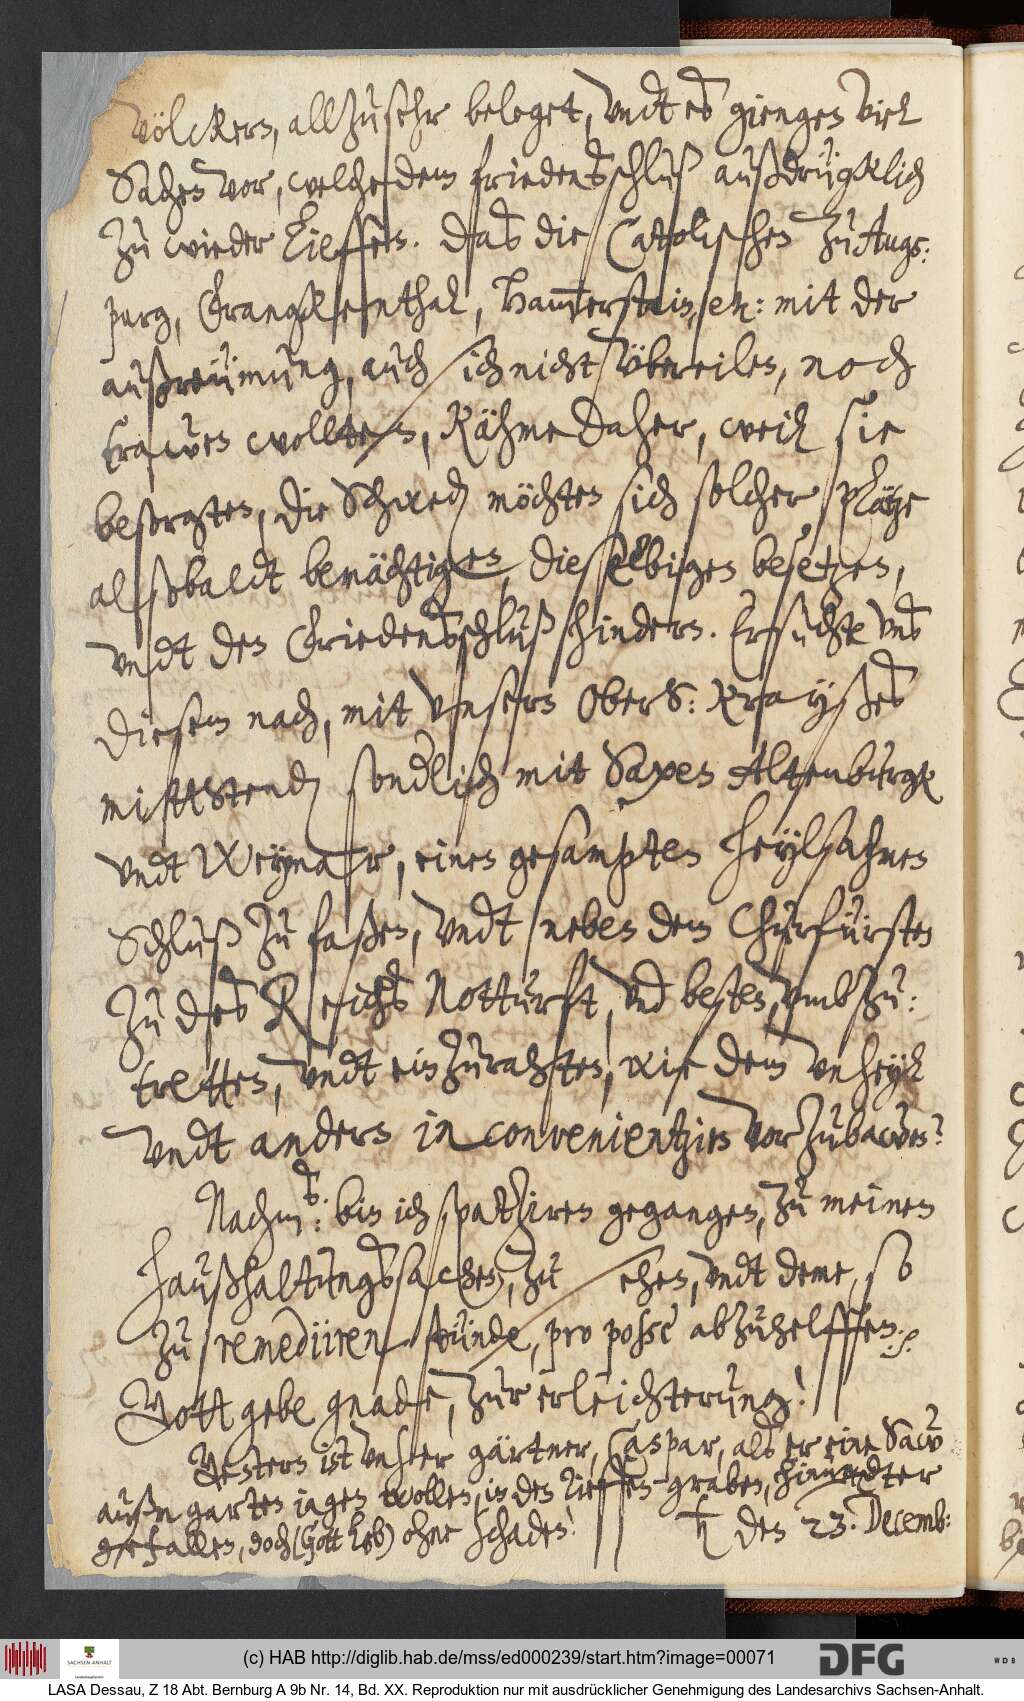 Völckern, allzusehr beleget, vndt es giengen viel
Sachen vor, welche dem friedensschluß außdrügklich
zu wieder lieffen. Das die Catolischen zu Aug:
purg, Frangkenthal, Ham̅erstein, etc: mit der
außreümung, auch sich nicht vbereilen, noch
trawen wollten, Kähme daher, weil sie
besorgten, die Schwed möchten sich solcher plätze
alsobaldt bemächtigen, dieselbigen besetzen,
vndt den Friedensschluß hindern. Ersuchte vns
diesem nach, mit vnsers OberS: Krayßes
mittStend sondlich mit Saxen Altenburgk
vndt Weymahr, einen gesampten heylsahmen
Schluß zu faßen, vndt neben dem Churfürsten
zu des Reichs Notturft, vnd besten, vmbzu:
tretten, vndt einzurahten, wie dem vnheyl
vndt andern inconvenientzien vorzubawen?
Nachm: bin ich spatziren gegangen, zu meinen
haußhaltungssachen, zu sehen, vndt deme, so
zu remediiren stünde, pro posse abzuhelffen.
Gott gebe gnade, zur erleichterung!
Gestern ist vnser gärtner, Caspar, als er eine Saw
außm garten jagen wollen, in den tieffen graben, hinundter
gefallen, doch (Gott lob) ohne schaden!
♄ den 23. Decemb:
(c) HAB http://diglib.hab.de/mss/ed000239/start.htm?image=00071
SACHSEN-ANHALT
DFG
WDB
LASA Dessau, Z 18 Abt. Bernburg A 9b Nr. 14, Bd. XX. Reproduktion nur mit ausdrücklicher Genehmigung des Landesarchivs Sachsen-Anhalt.